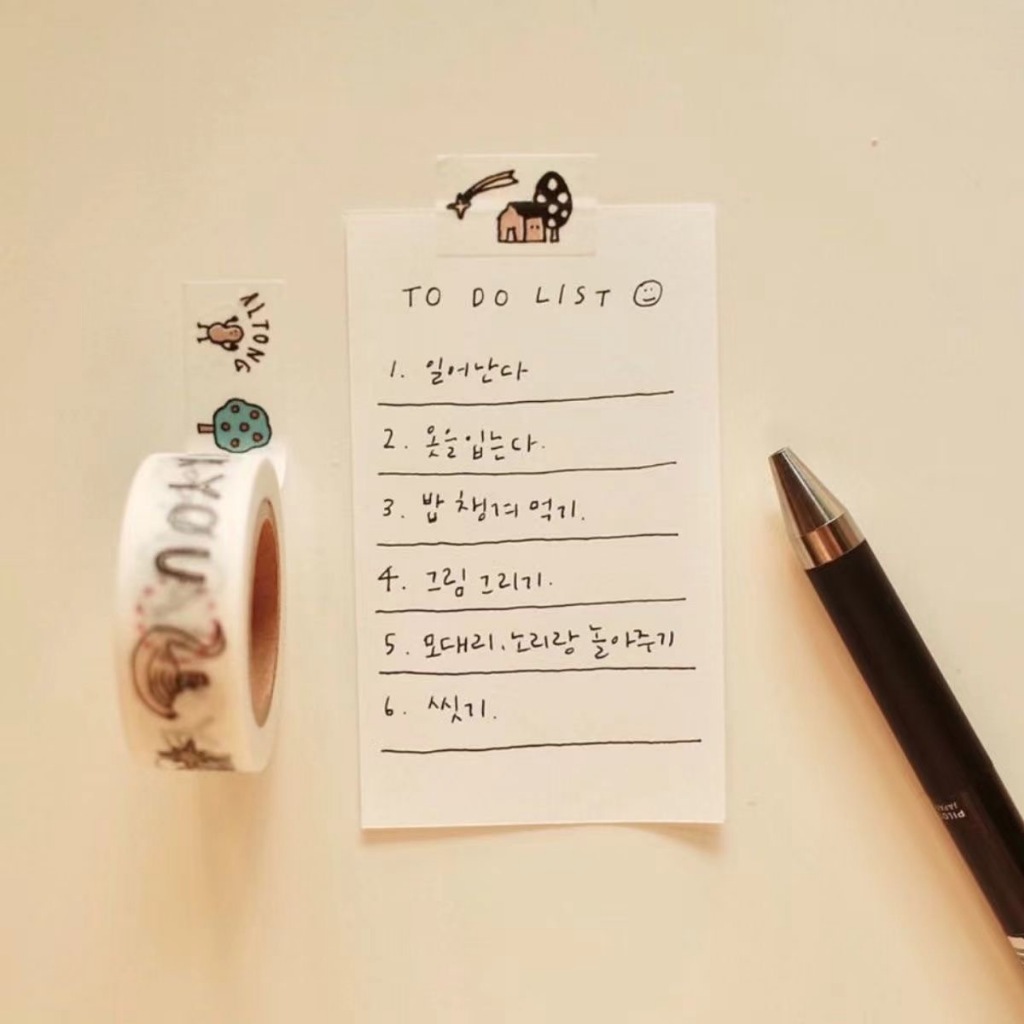 TO DO LIST
1. 일어난다
2. 옷을 입는다.
3. 밥 챙겨 먹기.
4. 그림 그리기.
5. 모대리.노리랑 놀아주기
6. 씻기.
ALTONG
YOU
PILOT
JAPAN